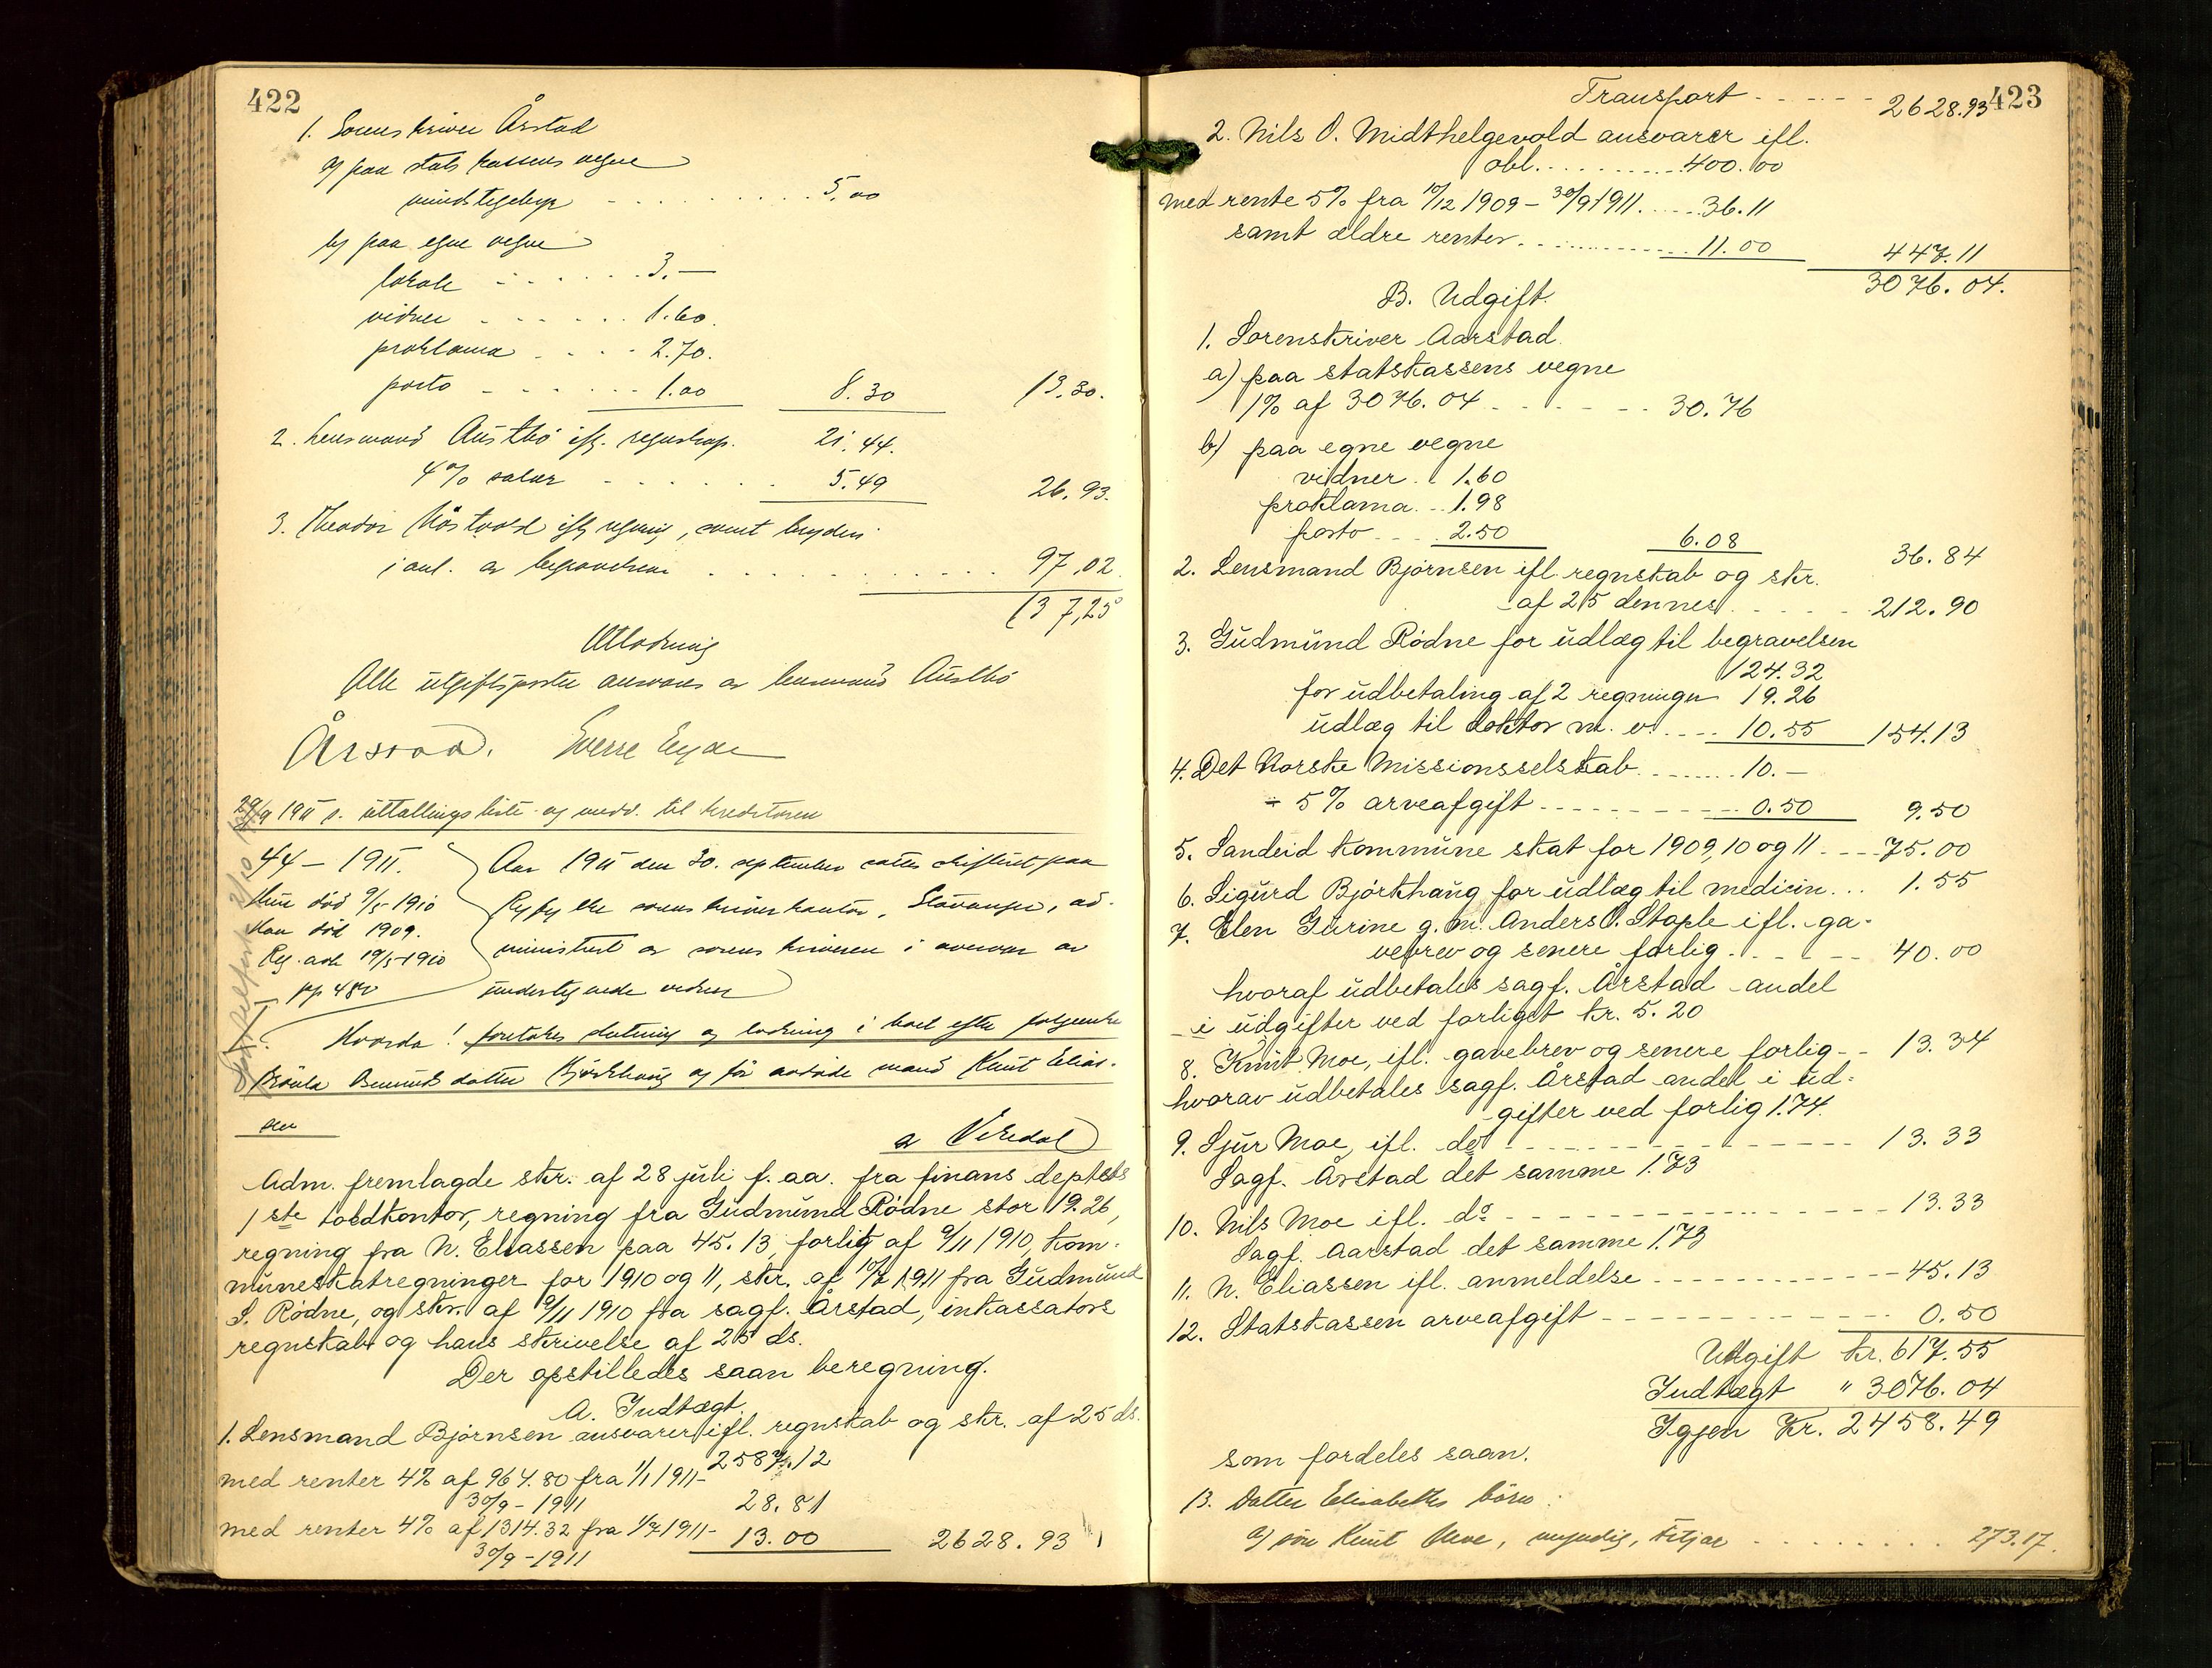 422
1. Sorenskriver Årstad
a) paa statskassens vegne
mindstegebyr - - - - - - - - 5,00
b) paa egne vegne
lokale - - - - - - 3.—
vidner - - - - - - 1.60.
proklama - - - - 2.70.
porto - - - - - - 1.00 8.30 13.30.
2. Lensmand Austbö ifl. regnskap. 21.44.
4% salær - - - - - - 5.49 26.93.
3. Theodor ifl. regning, samt
i anl. av begravelsen . . . . . . . . . . 97,02
137,25
Utlodning
Alle utgiftsposter ansvares av lensmand Austbö
Årstad. Sverre Eyde
29/9 1911 s. uttallingsliste og medd. til kreditoren
44 - 1911.
Hun död 9/5-1910
Han död 1909.
Reg. adk 19/5-1910
pp 480
Aar 1911 den 30. september sattes skifteret paa
Ryfylke sorenskriverkontor, Stavanger, ad-
ministrert av sorenskriveren i overvær av
undertegnede vidner
Hvorda! foretokes slutning og lodning i boet efter følgende
datter Björkhaug og för avdøde mand Knut Elias-
sen
a Vikedal
Adm. fremlagde skr. af 28 juli f. aa. fra finans deptets
1ste toldkontor, regning fra Gudmund Rödne stor 19.26,
regning fra N. Eliassen paa 45.13, forlig af 9/11 1910, kom-
muneskatregninger for 1910 og 11, skr. af 10/2 1911 fra Gudmund
S. Rödne, og skr. af 9/11 1910 fra sagf. Årstad, inkassators
regnskab og hans skrivelse af 25 ds.
Der opstilledes saan beregning.
A. Indtægt.
1. Lensmand Björnsen ansvarer ifl. regnskab og skr. af 25 ds.
2587.12
med renter 4% af 964.80 fra 1/1 1911-
30/9 - 1911 28.81
med renter 4% af 1314.32 fra 1/7 1911-
30/9 - 1911 13.00 2628.93
423
Transport - - - - - - 2628.93
2. Nils O. Midthelgevold ansvarer ifl.
obl. . . . . . . . . . . 400.00
med rente 5% fra 10/12 1909 - 30/9 1911. . . . . 36.11
samt ældre renter. . . . . . . . . . . 11.00 447.11
3076.04.
B. Udgift.
1. Sorenskriver Aarstad.
a) paa statskassens vegne
1% af 3076.04 - - - - - - 30.76
b) paa egne vegne
vidner . . 1.60
proklama. . . 1.98
porto - - - . 2.50 6.08 36.84
2. Lensmand Björnsen ifl. regnskab og skr.
af 25 dennes . - - - - 212.90
3. Gudmund Rödne for udlæg til begravelsen
124.32
for udbetaling af 2 regninger 19.26
udlæg til doktor m. v. . . . . 10.55 154.13
4. Det Norske Missionsselskab . . . . . . . . 10.—
÷ 5% arveafgift - - - - - - - - - - 0.50 9.50
5. Sandeid kommune skat for 1909, 10 og 11 - - - 75.00
6. Sigurd Björkhaug for udlæg til medicin. . . 1.55
7. Elen Gurine g. m. Anders O. Staple ifl. ga-
vebrev og senere forlig . - - - - - 40.00
hvoraf udbetales sagf. Årstad andel
i udgifter ved forliget kr. 5.20
8. Knut Moe, ifl. gavebrev og senere forlig - - 13.34
hvorav udbetales sagf. Årstad andel i ud-
gifter ved forlig 1.74.
9. Sjur Moe, ifl. do - - - - - - - - - - - - - - - 13.33
Sagf. Årstad det samme 1.73
10. Nils Moe ifl. do - - - - - - - - - - - - - - - 13.33
Sagf. Aarstad det samme 1.73
11. N. Eliassen ifl. anmeldelse - - - - - - - - - - 45.13
12. Statskassen arveafgift - - - - - - - - - - - - 0.50
Udgift kr. 617.55
Indtægt " 3076.04
Igjen Kr. 2458.49
som fordeles saan.
13. Datter Elisabeths börn:
a) sön Knut Moe, myndig, Fitjar . . . . . . . . 273.17.